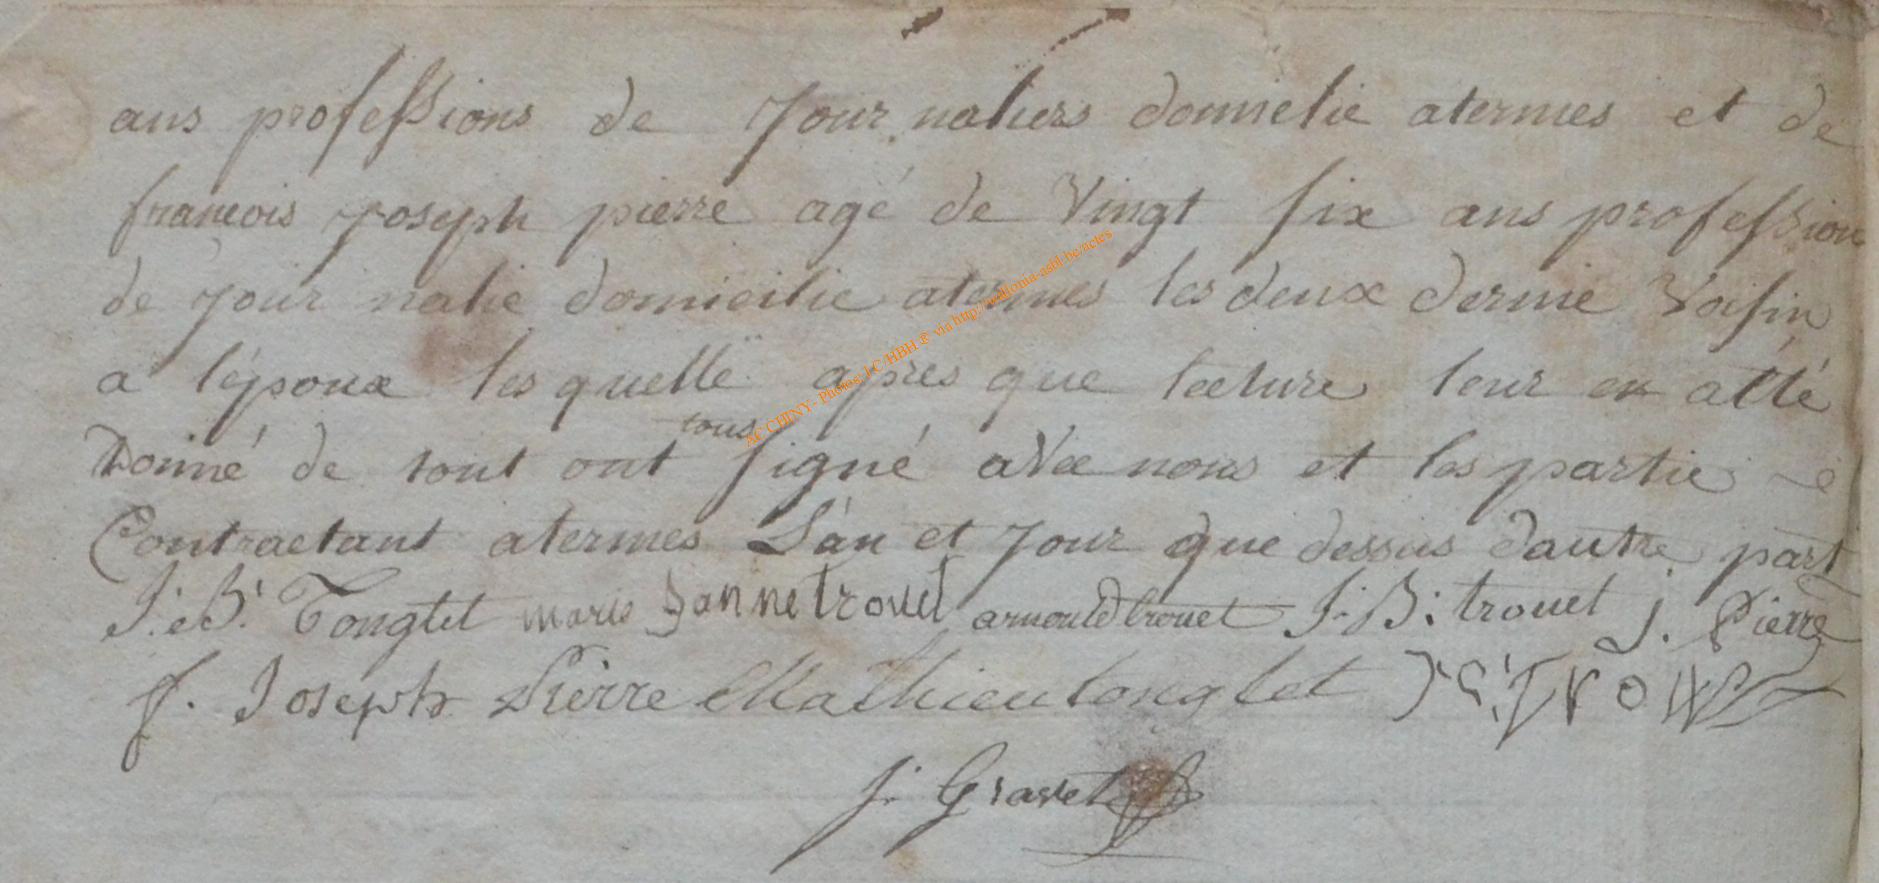 ans professions de Journaliers domielie atermes et de
francois Joseph pierre agé de Vingt six ans profession
de Journalie domicilie atermes les deux dernie Voisin
a l'époux lesquelle apres que lecture leur en atté
tous
Donné de tout ont signé avec nous et les partie
Contractant atermes L'an et Jour que dessus d'autre part
J: B: Tonglet marie Jannetrouet arnould trouet J: B: trouet j. Pierre
f. Joseph Pierre Mathieu tonglet
J. Gravet
AC CHINY - Photos: J-C HBH ® via http://wallonia-asbl.be/actes